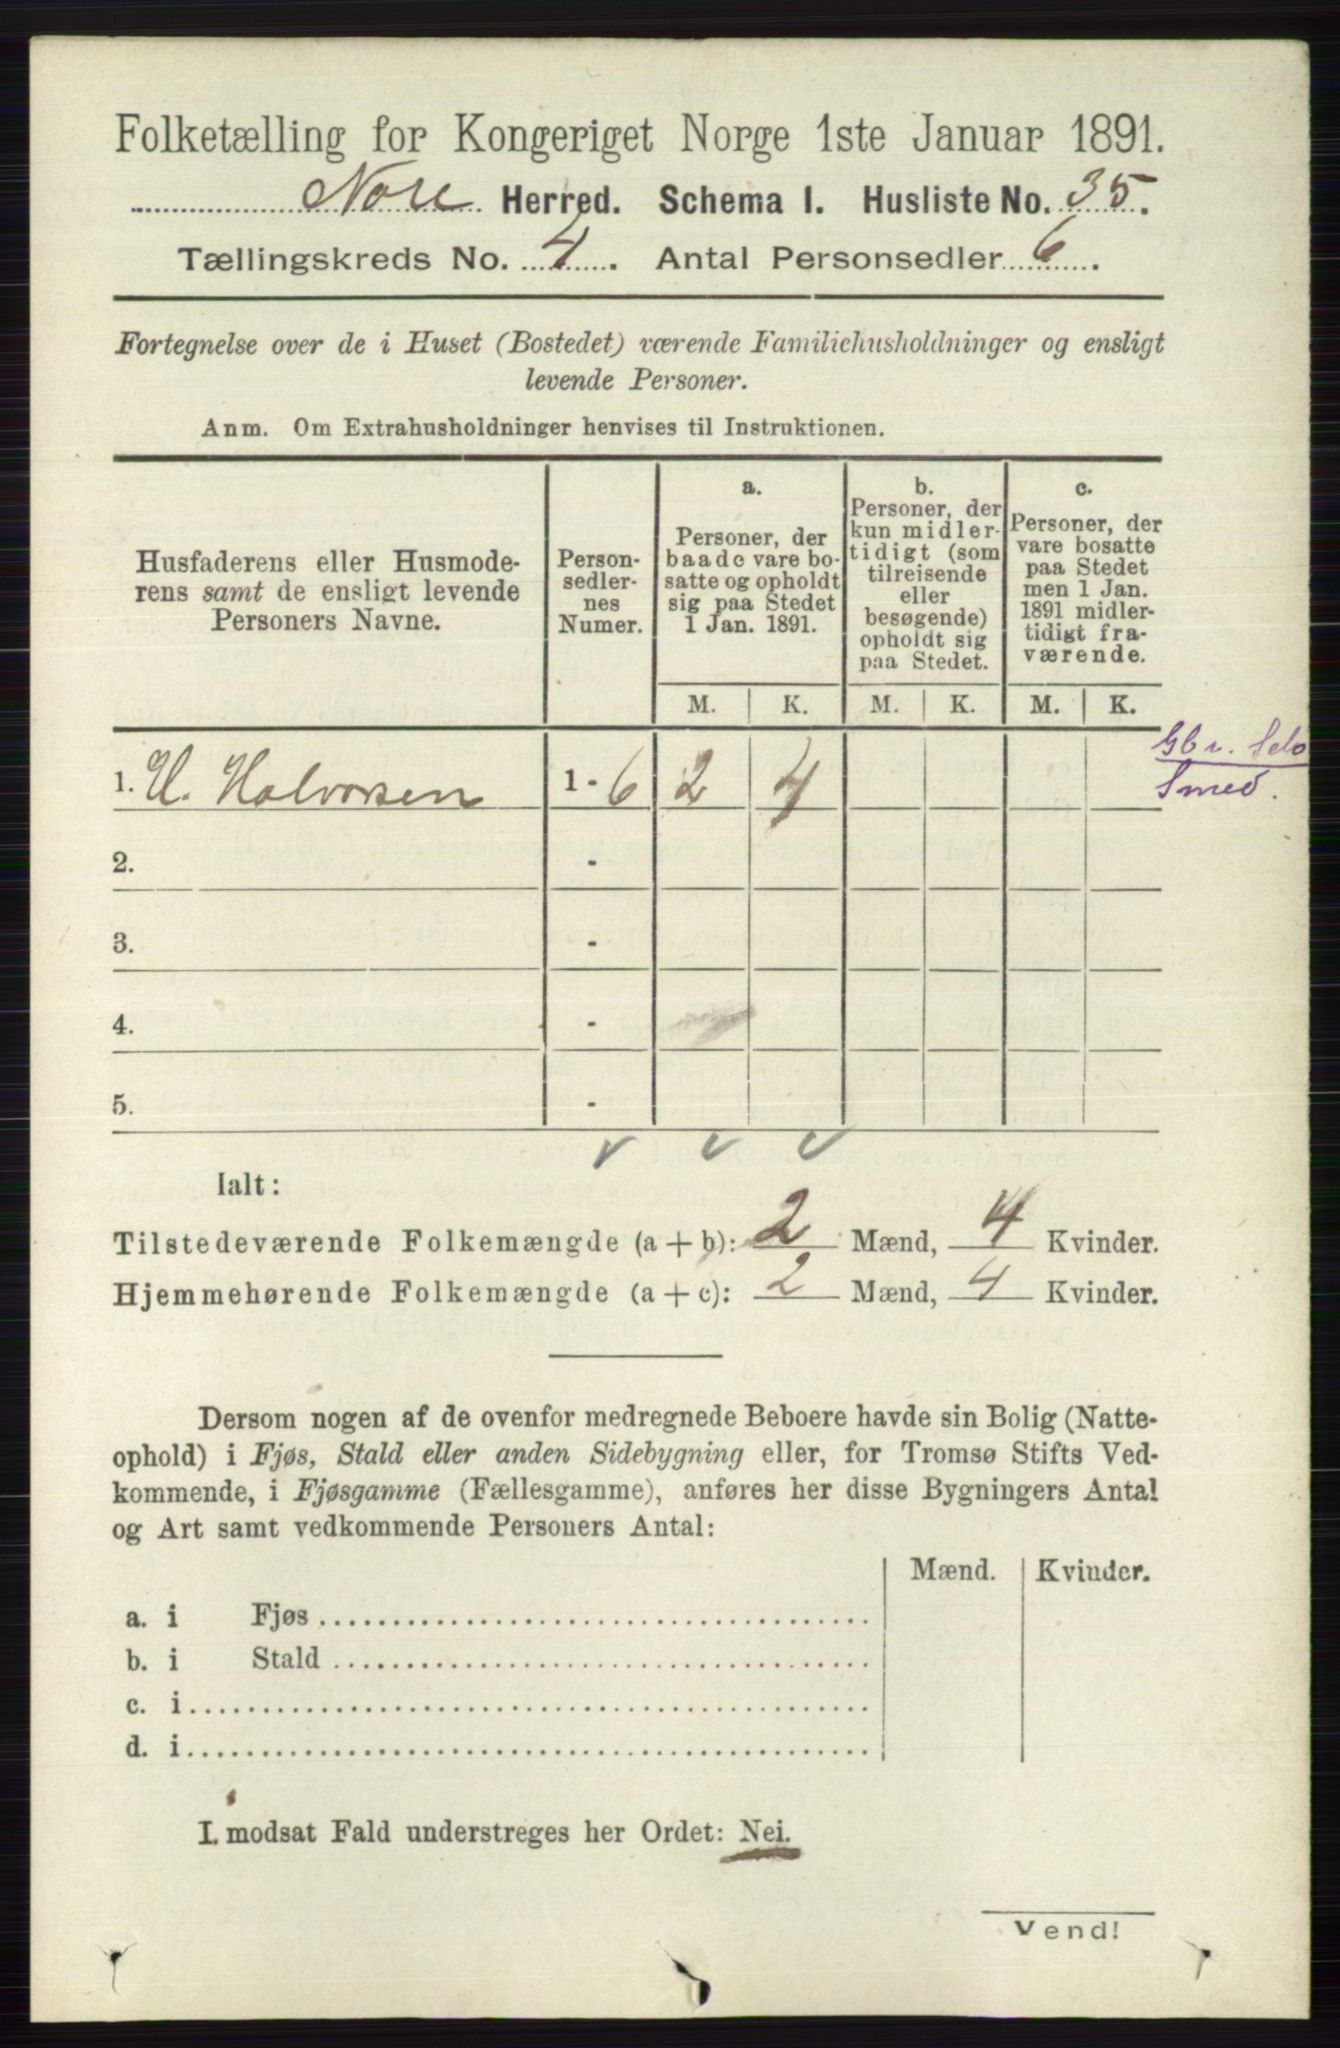 Folketælling for Kongeriget Norge 1ste Januar 1891.
Nore Herred. Schema I. Husliste No. 35.
Tællingskreds No. 4. Antal Personsedler 6.
Fortegnelse over de i Huset (Bostedet) værende Familiehusholdninger og ensligt
levende Personer.
Anm. Om Extrahusholdninger henvises til Instruktionen.
Husfaderens eller Husmode-
rens samt de ensligt levende
Personers Navne.
Person-
sedler-
nes
Numer.
a.
Personer, der
baade vare bo-
satte og opholdt
sig paa Stedet
1 Jan. 1891.
b.
Personer, der
kun midler-
tidigt (som
tilreisende
eller
besøgende)
opholdt sig
paa Stedet.
c.
Personer, der
vare bosatte
paa Stedet
men 1 Jan.
1891 midler-
tidigt fra-
værende.
M. K. M. K. M. K.
1. H. Halvorsen 1 - 6 2 4
Gbr. Selv
Smed.
2. -
3. -
4. -
5. -
Ialt:
Tilstedeværende Folkemængde (a + b): 2 Mænd, 4 Kvinder.
Hjemmehørende Folkemængde (a + c): 2 Mænd, 4 Kvinder.
Dersom nogen af de ovenfor medregnede Beboere havde sin Bolig (Natte-
ophold) i Fjøs, Stald eller anden Sidebygning eller, for Tromsø Stifts Ved-
kommende, i Fjøsgamme (Fællesgamme), anføres her disse Bygningers Antal
og Art samt vedkommende Personers Antal:
Mænd. Kvinder.
a. i Fjøs
b. i Stald
c. i
d. i
I modsat Fald understreges her Ordet: Nei.
Vend!